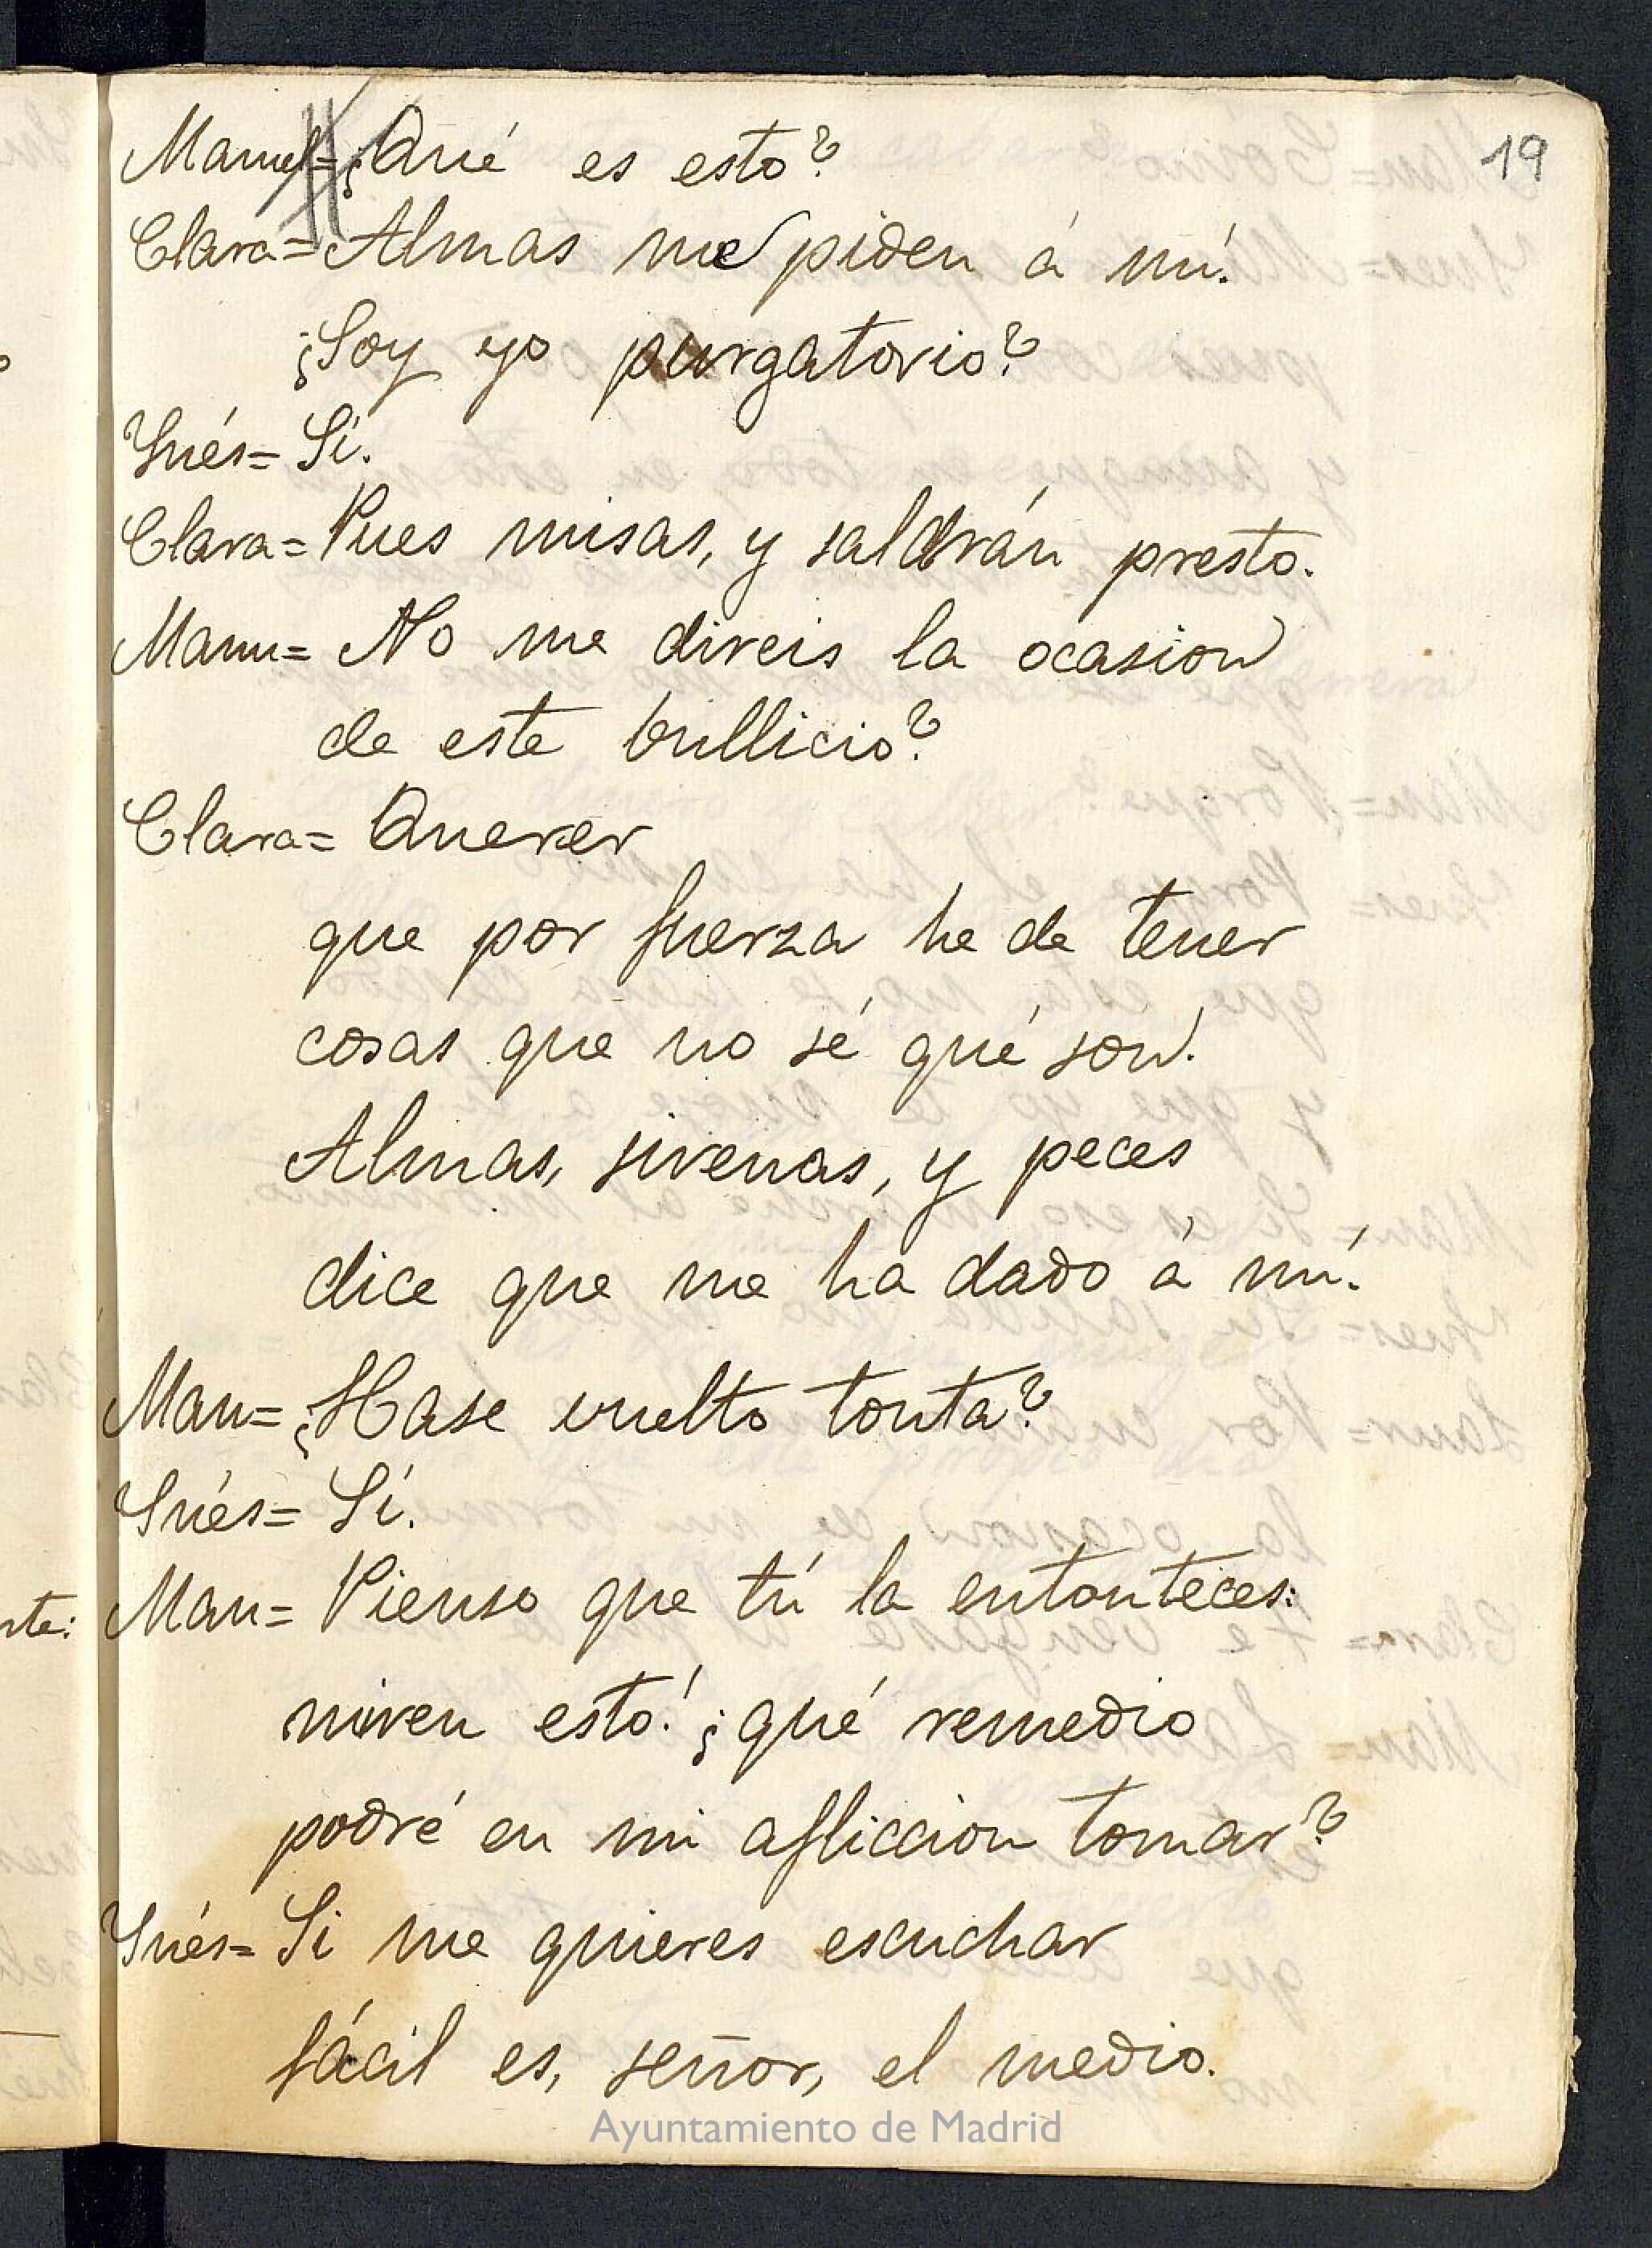 19
Manuel= ¿Qué es esto?
Clara= Almas me piden á mí.
¿Soy yo purgatorio?
Ynés= Sí.
Clara= Pues misas, y saldrán presto.
Manu= No me direis la ocasion
de este bullicio?
Clara= Querer
que por fuerza he de tener
cosas que no sé qué son.
Almas, sirenas, y peces
dice que me ha dado á mí.
Man= ¿Hase vuelto tonta?
Ynés= Sí.
Man= Pienso que tú la entonteces:
miren esto! ¿qué remedio
podré en mi afliccion tomar?
Ynés= Si me quieres escuchar
fácil es, señor, el medio.
Ayuntamiento de Madrid